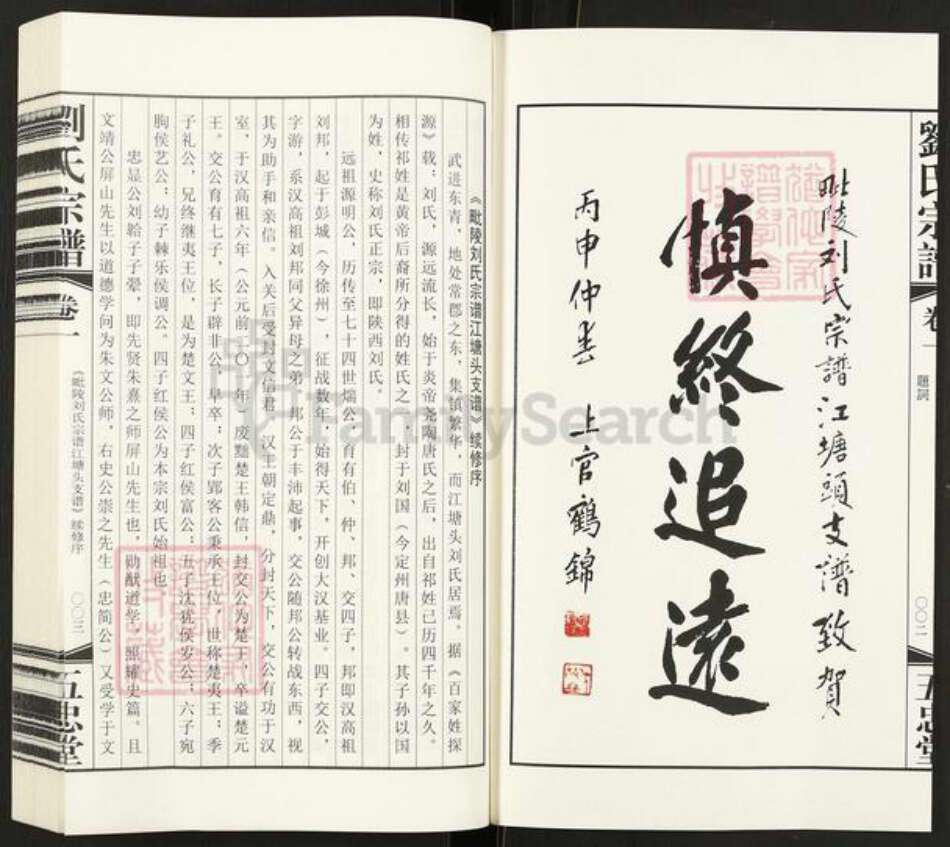 劉氏宗譜
卷一
題詞
〇〇二
五忠堂
毗陵刘氏宗譜江塘頭支譜致賀
慎終追遠
丙申仲春 上官鶴錦
《毗陵刘氏宗谱江塘头支谱》续修序
武进东青，地处常郡之东，集镇繁华，而江塘头刘氏居焉。据《百家姓探
源》载：刘氏，源远流长，始于炎帝尧陶唐氏之后，出自祁姓已历四千年之久。
相传祁姓是黄帝后裔所分得的姓氏之一，封于刘国（今定州唐县）。其子孙以国
为姓，史称刘氏正宗，即陕西刘氏。
远祖源明公，历传至七十四世煓公，育有伯、仲、邦、交四子，邦即汉高祖
刘邦，起于彭城（今徐州），征战数年，始得天下，开创大汉基业。四子交公，
字游，系汉高祖刘邦同父异母之弟，邦公于丰沛起事，交公随邦公转战东西，视
其为助手和亲信。入关后受封文信君，汉王朝定鼎，分封天下，交公有功于汉
室，于汉高祖六年（公元前二〇一年）废黜楚王韩信，封交公为楚王，卒谥楚元
王。交公育有七子，长子辟非公，早卒；次子郢客公秉承王位，世称楚夷王；季
子礼公，兄终继夷王位，是为楚文王；四子红侯富公；五子沈犹侯岁公；六子宛
朐侯艺公；幼子棘乐侯调公。四子红侯公为本宗刘氏始祖也。
忠显公刘韐子子翚，即先贤朱熹之师屏山先生也，勋猷道学，照耀史篇。且
文靖公屏山先生以道德学问为朱文公师，右史公崇之先生（忠简公）又受学于文
《毗陵刘氏宗谱江塘头支谱》续修序
〇〇三
劉氏宗譜
卷一
五忠堂
FamilySearch